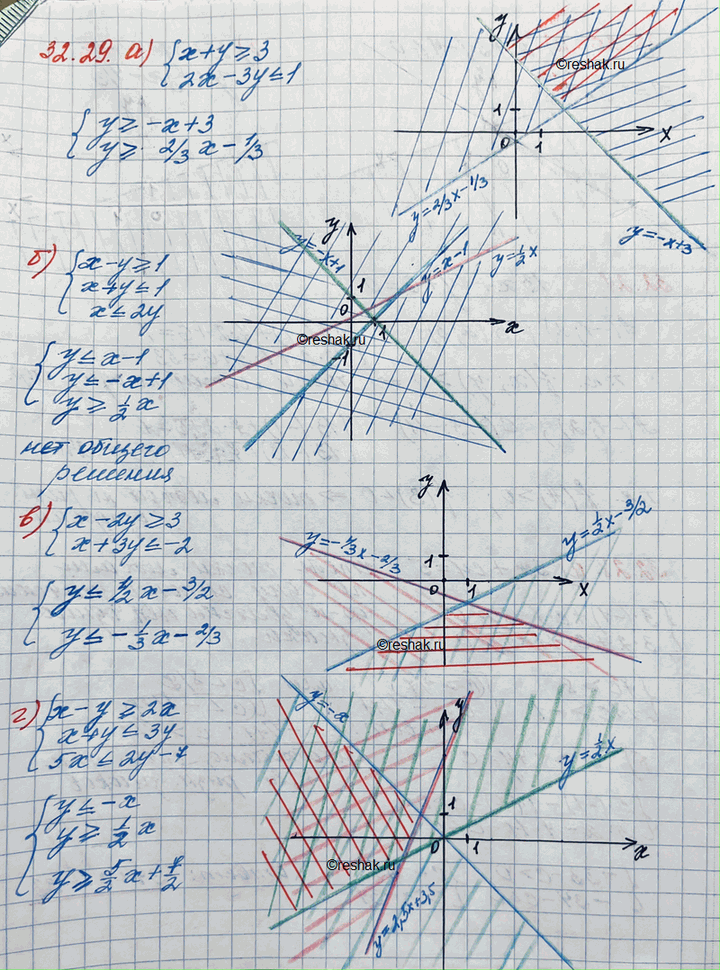 32.29. а) { x+y ≥ 3
2x-3y ≤ 1
{ y ≥ -x+3
y ≥ 2/3 x - 1/3
y
©reshak.ru
1
0
1
x
y=2/3x-1/3
y=-x+3
б) { x-y ≥ 1
x+y ≤ 1
x ≤ 2y
{ y ≤ x-1
y ≤ -x+1
y ≥ 1/2 x
нет общего
решения
y
y=-x+1
y=x-1
y=1/2x
1
0
1
x
©reshak.ru
-1
в) { x-2y ≥ 3
x+3y ≤ -2
{ y ≤ 1/2 x - 3/2
y ≤ -1/3 x - 2/3
y
y=-1/3x-2/3
y=1/2x-3/2
1
0
1
x
©reshak.ru
г) { x-y ≥ 2x
x+y ≤ 3y
5x ≤ 2y-7
{ y ≤ -x
y ≥ 1/2 x
y ≥ 5/2 x + 7/2
y=-x
y
y=1/2x
1
0
1
x
©reshak.ru
y=2,5x+3,5